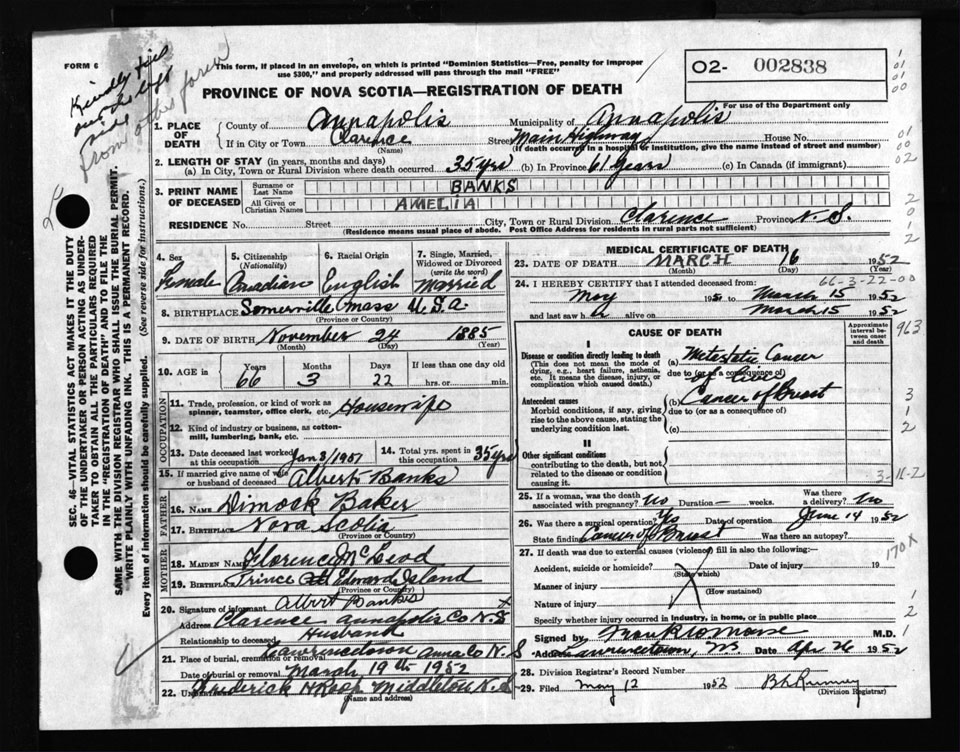 FORM 6
Kindly fill
out the left
side
from other form
This form, if placed in an envelope, on which is printed "Dominion Statistics—Free, penalty for improper
use $300," and properly addressed will pass through the mail "FREE"
02- 002838
PROVINCE OF NOVA SCOTIA—REGISTRATION OF DEATH
For use of the Department only
1. PLACE OF DEATH
County of Annapolis Municipality of Annapolis
If in City or Town Clarence Street Main Highway House No.
(Name) (If death occurred in a hospital or institution, give the name instead of street and number)
2. LENGTH OF STAY (in years, months and days)
(a) In City, Town or Rural Division where death occurred 35 yrs (b) In Province 61 years (c) In Canada (if immigrant)
3. PRINT NAME OF DECEASED
Surname or Last Name BANKS
All Given or Christian Names AMELIA
RESIDENCE No. Street City, Town or Rural Division Clarence Province N.S.
(Residence means usual place of abode. Post Office Address for residents in rural parts not sufficient)
SEC. 46—VITAL STATISTICS ACT MAKES IT THE DUTY
OF THE UNDERTAKER OR PERSON ACTING AS UNDER-
TAKER TO OBTAIN ALL THE PARTICULARS REQUIRED
IN THE "REGISTRATION OF DEATH" AND TO FILE THE
SAME WITH THE DIVISION REGISTRAR WHO SHALL ISSUE THE BURIAL PERMIT.
WRITE PLAINLY WITH UNFADING INK. THIS IS A PERMANENT RECORD.
Every item of information should be carefully supplied. (See reverse side for instructions.)
4. Sex Female
5. Citizenship (Nationality) Canadian
6. Racial Origin English
7. Single, Married, Widowed or Divorced (write the word) Married
8. BIRTHPLACE Somerville Mass U.S.A
(Province or Country)
9. DATE OF BIRTH November 24 1885
(Month) (Day) (Year)
10. AGE Years 66 Months 3 Days 22 If less than one day old
hrs. or min.
OCCUPATION
11. Trade, profession, or kind of work as
spinner, teamster, office clerk, etc. Housewife
12. Kind of industry or business, as cotton-
mill, lumbering, bank, etc.
13. Date deceased last worked at this occupation Jan 3/1951
14. Total yrs. spent in this occupation 35 yrs
15. If married give name of wife
or husband of deceased Albert Banks
FATHER
16. Name Dimock Baker
17. Birthplace Nova Scotia
(Province or Country)
MOTHER
18. MAIDEN NAME Florence McLeod
19. BIRTHPLACE Prince Edward Island
(Province or Country)
20. Signature of informant Albert Banks
Address Clarence Annapolis Co N.S
Relationship to deceased Husband
21. Place of burial, cremation or removal Lawrencetown Anna Co N.S
Date of burial or removal March 19th 1952
22. Undertaker Roop Middleton N.S
(Name and address)
MEDICAL CERTIFICATE OF DEATH
23. DATE OF DEATH MARCH 16 1952
(Month) (Day) (Year)
66-3-22-00
24. I HEREBY CERTIFY that I attended deceased from:
May 1951 to March 15 1952
and last saw h alive on March 15 1952
CAUSE OF DEATH
Approximate interval between onset and death
963
I
Disease or condition directly leading to death
(This does not mean the mode of
dying, e.g., heart failure, asthenia,
etc. It means the disease, injury, or
complication which caused death.)
(a) Metastatic Cancer
due to (or as a consequence of)
of liver
Antecedent causes
Morbid conditions, if any, giving
rise to the above cause, stating the
underlying condition last.
(b) Cancer of Breast
due to (or as a consequence of)
(c)
II
Other significant conditions
contributing to the death, but not
related to the disease or condition
causing it.
3-11-2
25. If a woman, was the death
associated with pregnancy? No Duration— weeks. Was there a delivery? No
26. Was there a surgical operation? Yes Date of operation June 14 1952
State findings Cancer of Breast Was there an autopsy?
170X
27. If death was due to external causes (violence) fill in also the following:—
Accident, suicide or homicide? Date of injury 19
(State which)
Manner of injury
(How sustained)
Nature of injury
Specify whether injury occurred in industry, in home, or in public place
Signed by Frank Morse M.D.
Address Lawrencetown, NS Date Apr 26 1952
28. Division Registrar's Record Number
29. Filed May 12 1952
(Division Registrar)